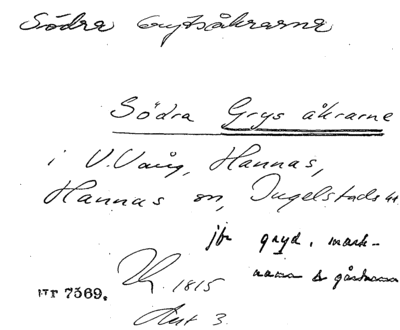 Södra Grytsåkrarne
Södra Grys åkrarne
i V. Vång, Hannas,
Hannas sn, Ingelstads hd.
jfr gryd, mark-
namn & gårdsnamn
1815
Nr 7569.
Akt 3.